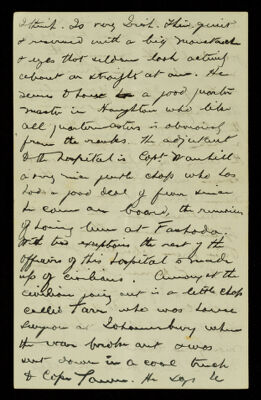 I think. Is very Irish. Thin, quiet
& reserved with a big moustache
& eyes that seldom look actively
about or straight at one. He
seems to have a good quarter
master in Haughton who like
all quartermasters is obviously
from the ranks. The adjutant
to the hospital is Capt
a very nice gentle chap who has
had a good deal of fever since
he came on board, the remains
of having been at Fashoda.
With two exceptions the rest of the
officers of this hospital is made
up of civilians. Amongst the
civilians going out is a little chap
called Farr who was house
surgeon at Johannesburg when
the war broke out & was
sent down in a coal truck
to Cape Town. He says he